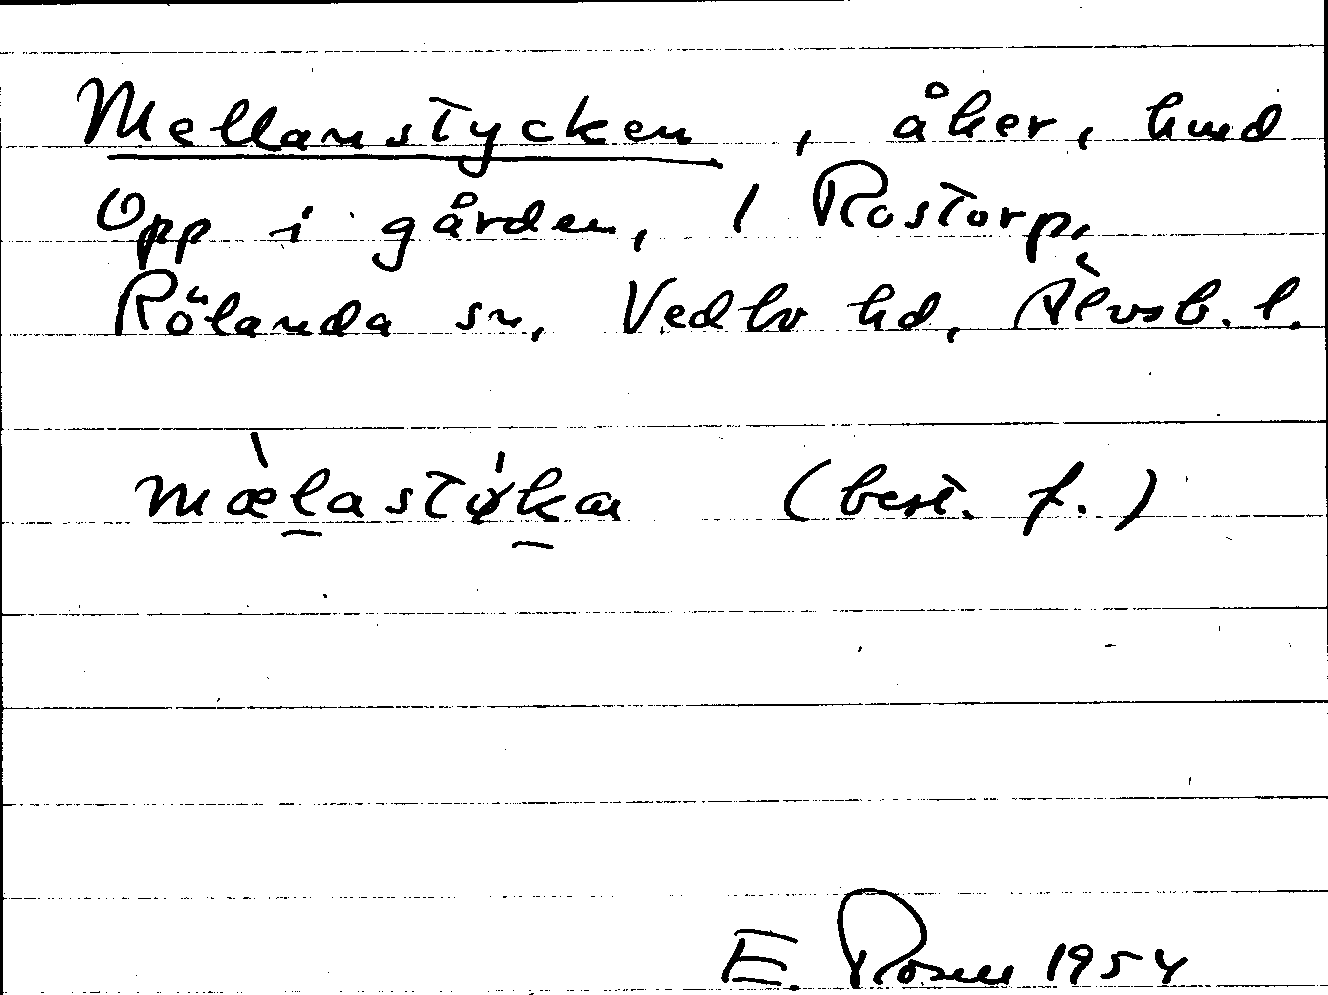 Mellanstycken, åker, hmd
Opp i gården, 1 Rostorp,
Rölanda sn, Vedbo hd, Älvsb. l.
mæ̀lastýka (best. f.)
E. Rosell 1954